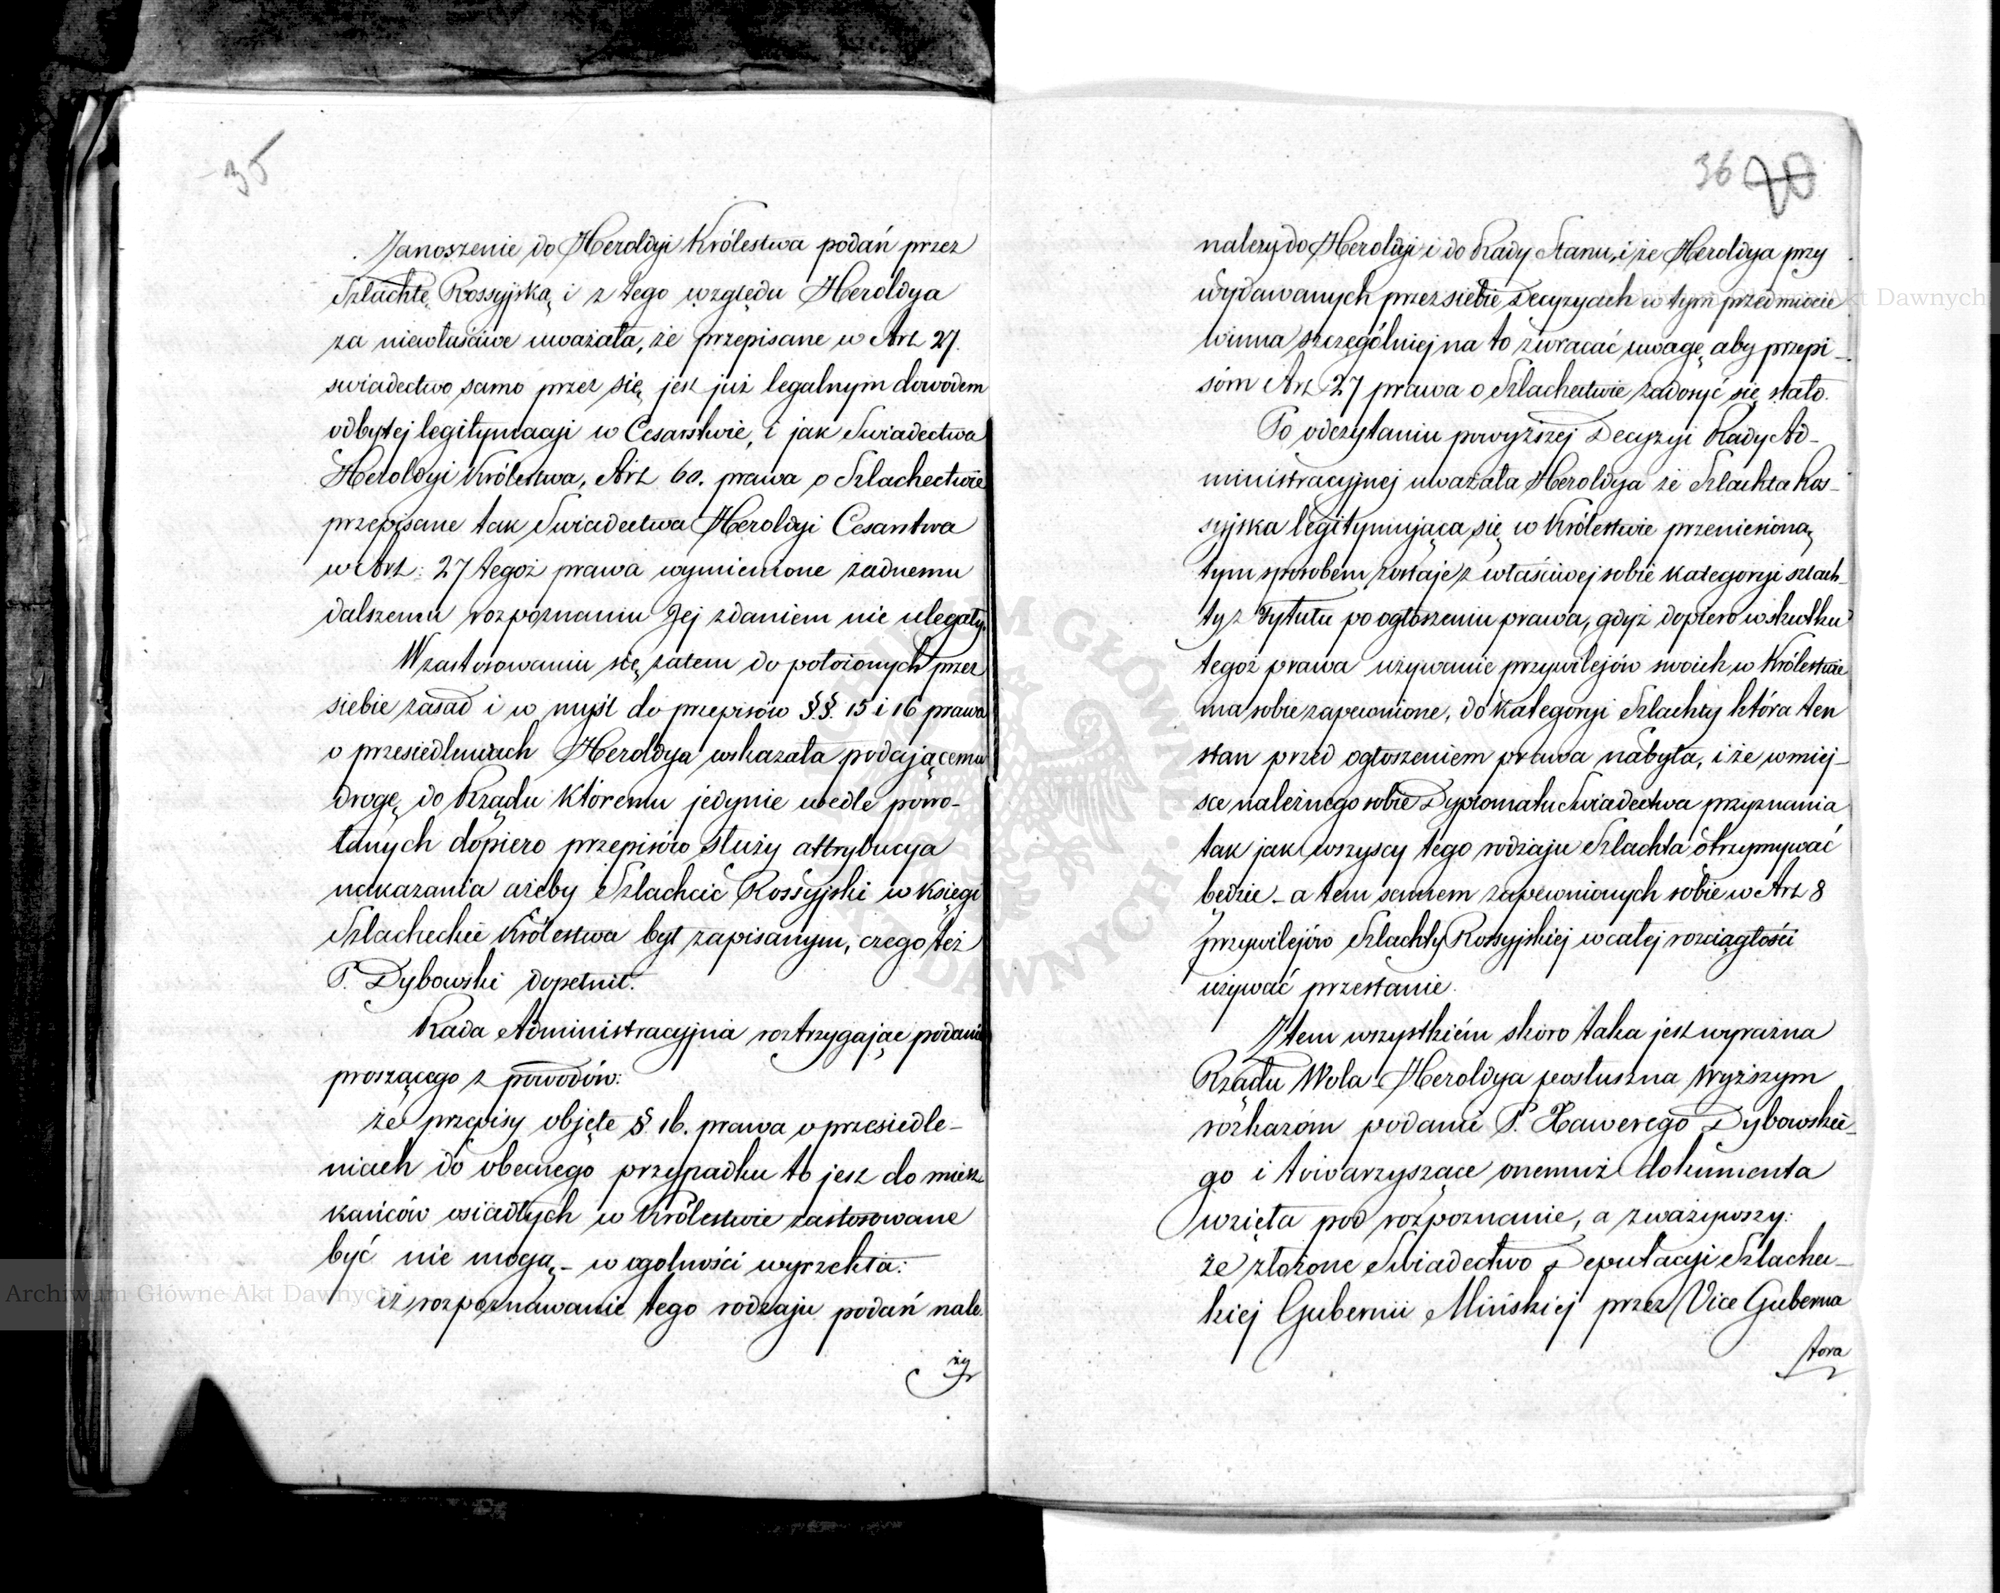 35
Zanoszenie do Heroldyi Królestwa podań przez
Szlachtę Rossyjską i z tego względu Heroldya
za niewłaściwe uważała, że przepisane w Art. 27.
swiadectwo samo przez się jest już legalnym dowodem
odbytej legitymacyi w Cesarstwie, i jak Swiadectwa
Heroldyi Królestwa, Art. 60. prawa o Szlachectwie
przepisane tak Swiadectwa Heroldyi Cesarstwa
w Art: 27 tegoż prawa wymienione żadnemu
dalszemu rozpoznaniu Jej zdaniem nie ulegały.
W zastosowaniu się zatem do położonych przez
siebie zasad i w myśl do przepisów §.§. 15 i 16 prawa
o przesiedleniach Heroldya wskazała podającemu
drogę do Rządu któremu jedynie wedle powo-
łanych dopiero przepisów służy attrybucya
nakazania ażeby Szlachcic Rossyjski w księgi
Szlacheckie Królestwa był zapisanym, czego też
P. Dybowski dopełnił.
Rada Administracyjna roztrzygając podanie
proszącego z powodów:
że przepisy objęte §. 16. prawa o przesiedle-
niach do obecnego przypadku to jest do miesz
kańców osiadłych w Królestwie zastosowane
być nie mogą – w ogolności wyrzekła:
iż rozpoznawanie tego rodzaju podań nale
ży
36 20
należy do Heroldyi i do Rady Stanu, i że Heroldya przy
wydawanych przez siebie Decyzyach w tym przedmiocie
winna szczególniej na to zwracać uwagę aby przepi-
sóm Art 27 prawa o Szlachectwie zadosyć się stało.
Po odczytaniu powyższej Decyzyi Rady Ad-
ministracyjnej uważała Heroldya że Szlachta Ros-
syjska legitymująca się w Królestwie przeniesioną
tym sposobem zostaje z właściwej sobie kategoryi szlach-
ty z tytułu po ogłoszeniu prawa, gdyż dopiero w skutku
tegoż prawa używanie przywilejów swoich w Królestwie
ma sobie zapewnione, do kategoryi Szlachty która ten
stan przed ogłoszeniem prawa nabyła, i że w miej-
sce należnego sobie Dyplomatu Swiadectwa przyznania
tak jak wszyscy tego rodzaju Szlachta otrzymywać
będzie – a tem samem zapewnionych sobie w Art 8
przywilejów Szlachty Rossyjskiej w całej rozciągłości
używać przestanie.
Z tem wszystkiém skoro taka jest wyraźna
Rządu Wola Heroldya posłuszna Wyższym
rozkazóm podanie P. Xawerego Dybowskie-
go i towarzyszące onemuż dokumenta
wzięła pod rozpoznanie, a zważywszy:
że złożone Swiadectwo Deputacyi Szlachec-
kiej Gubernii Mińskiej przez Vice Guberna
tora
Archiwum Główne Akt Dawnych
Archiwum Główne Akt Dawnych